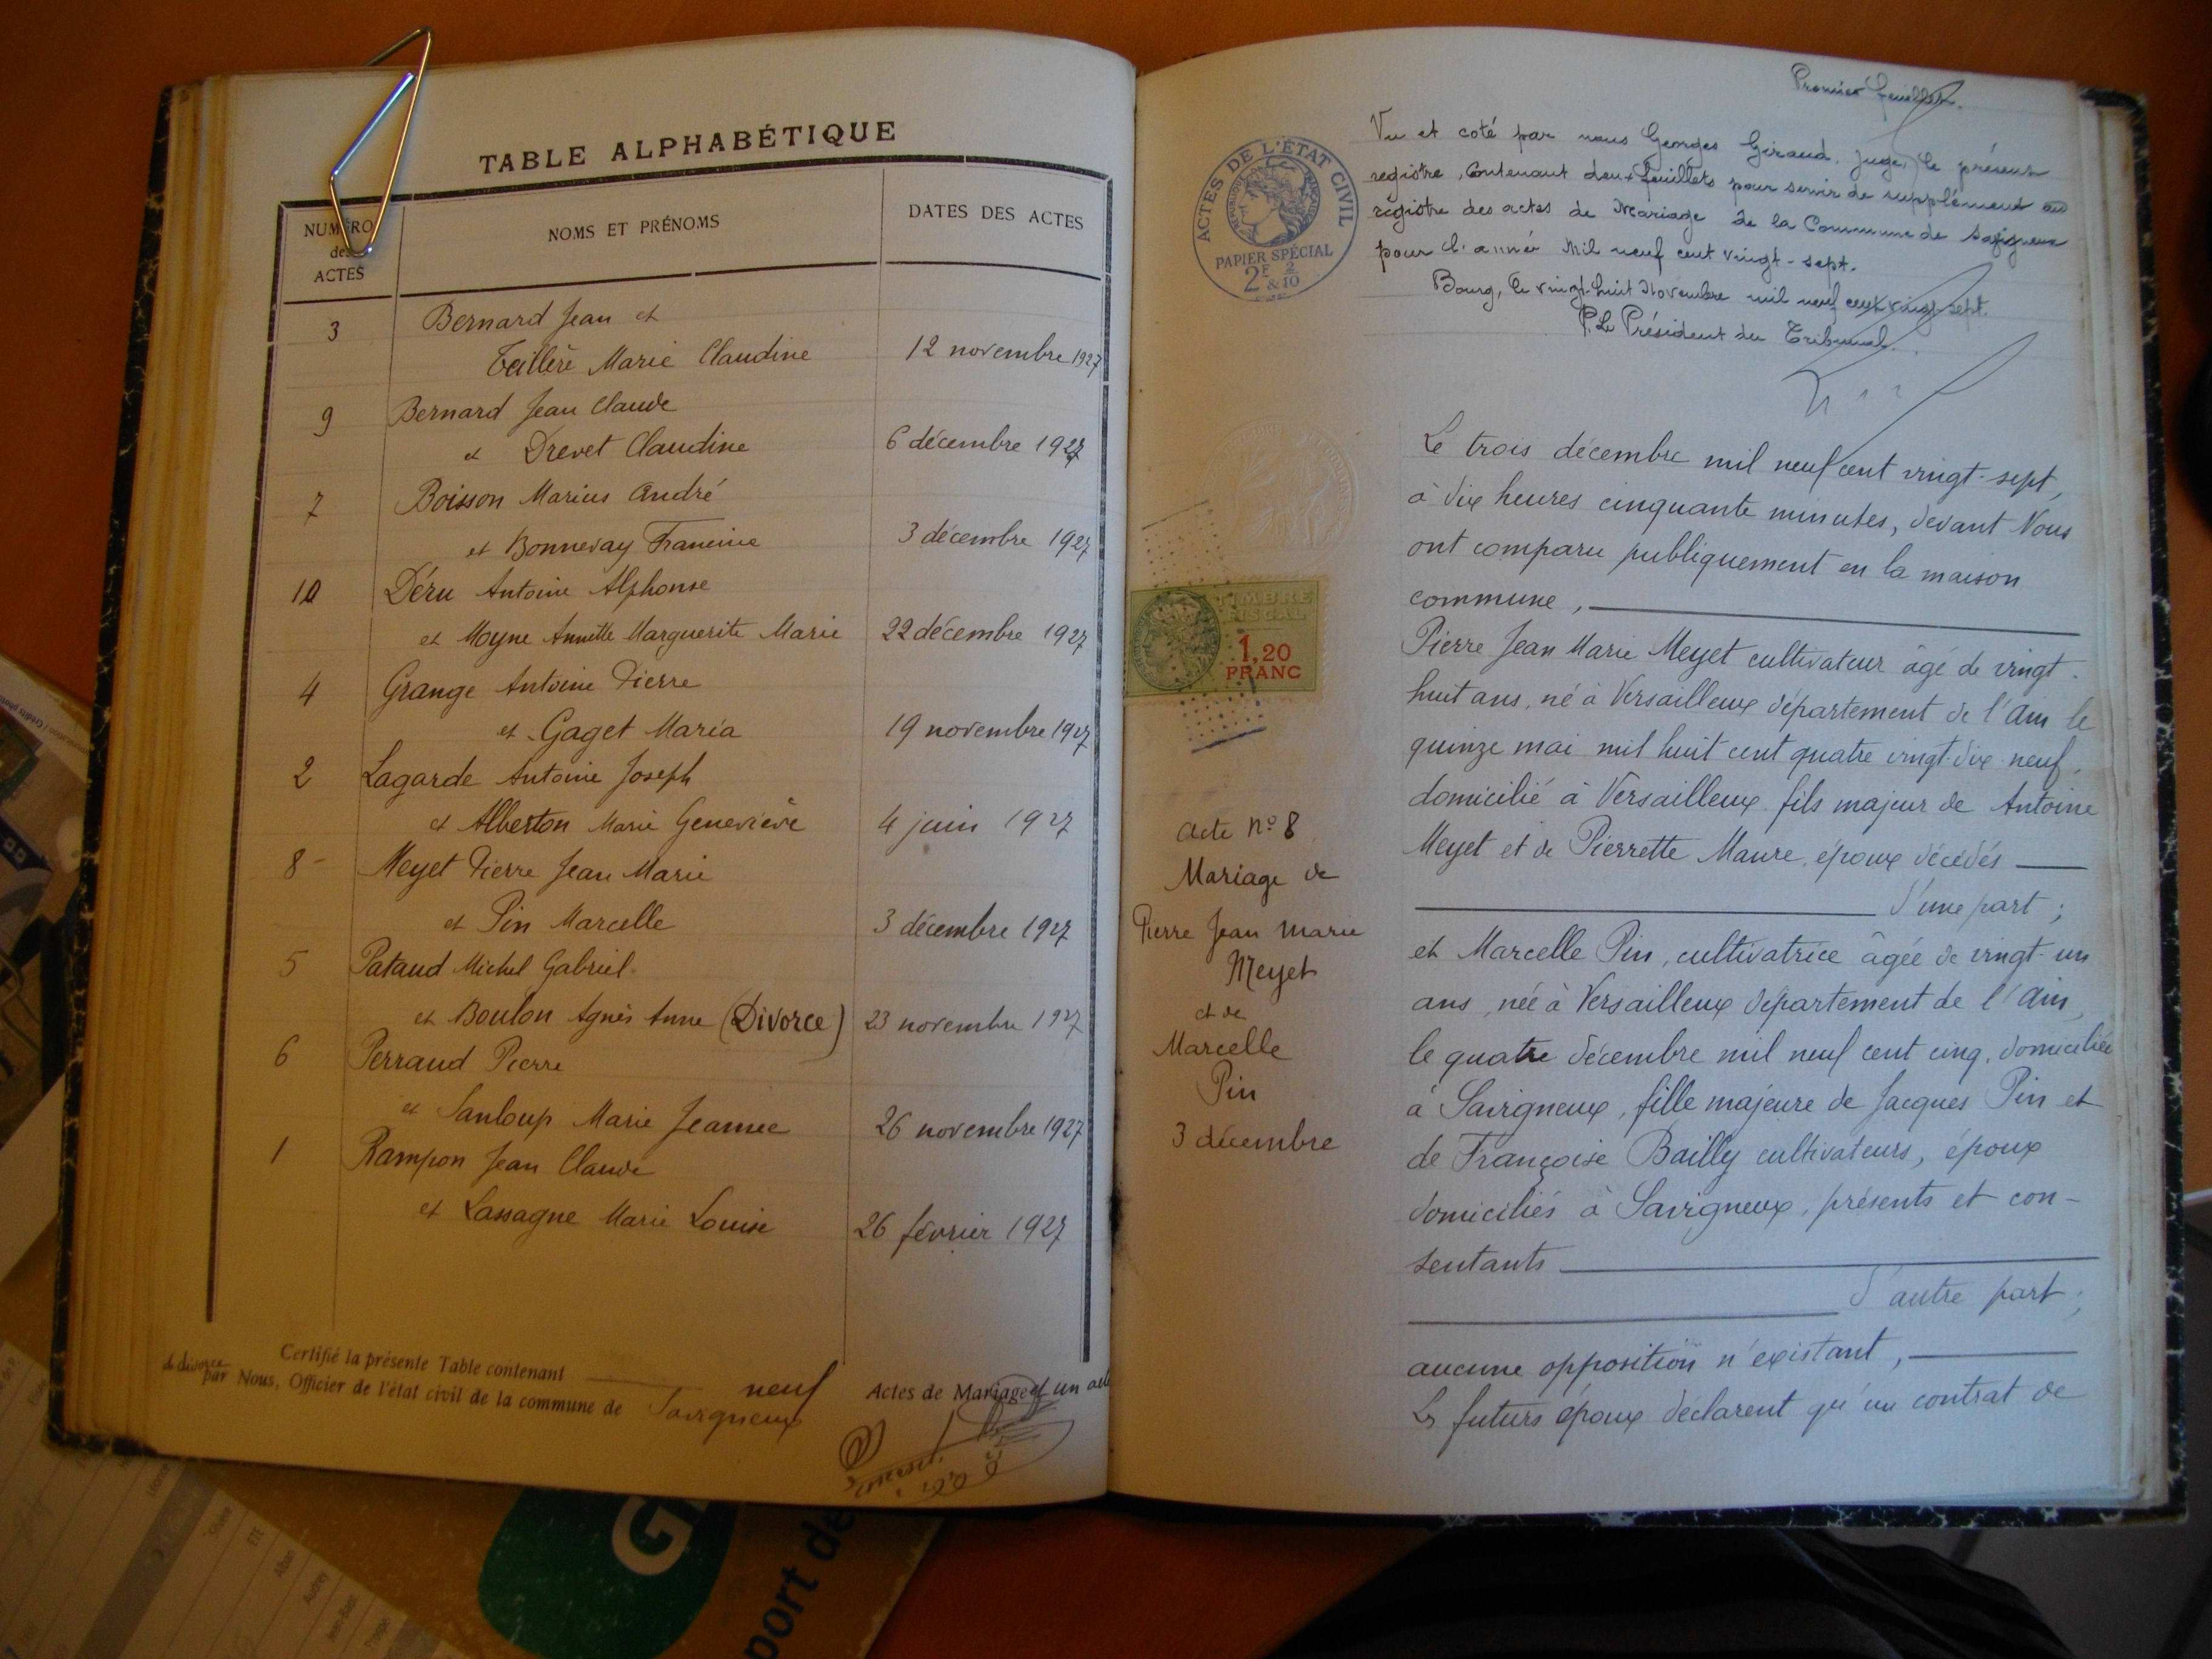 TABLE ALPHABÉTIQUE
NUMÉRO des ACTES
NOMS ET PRÉNOMS
DATES DES ACTES
3 Bernard Jean et
Teillère Marie Claudine 12 novembre 1927
9 Bernard Jean Claude
et Drevet Claudine 6 décembre 1927
7 Boisson Marius André
et Bonnevay Francine 3 décembre 1927
10 Déru Antoine Alphonse
et Moyne Annette Marguerite Marie 22 décembre 1927
4 Grange Antoine Pierre
et Gaget Maria 19 novembre 1927
2 Lagarde Antoine Joseph
et Alberton Marie Geneviève 4 juin 1927
8 - Meyet Pierre Jean Marie
et Pin Marcelle 3 décembre 1927
5 Pataud Michel Gabriel
et Boulon Agnès Anne (Divorce) 23 novembre 1927
6 Perraud Pierre
et Sanloup Marie Jeanne 26 novembre 1927
1 Rampon Jean Claude
et Lassagne Marie Louise 26 février 1927
Certifié la présente Table contenant neuf Actes de Mariage et un acte
de divorce par Nous, Officier de l'état civil de la commune de Savigneux
Premier feuillet.
Vu et coté par nous Georges Giraud, Juge, le présent
registre, contenant deux feuillets pour servir de supplément au
registre des actes de Mariage de la Commune de Savigneux
pour l'année Mil neuf cent vingt-sept.
Bourg, le vingt-huit Novembre mil neuf cent vingt-sept.
P. Le Président du Tribunal
ACTES DE L'ÉTAT CIVIL
PAPIER SPÉCIAL
2F & 2/10
TIMBRE
FISCAL
1,20
FRANC
Acte N° 8
Mariage de
Pierre Jean Marie
Meyet
et de
Marcelle
Pin
3 décembre
Le trois décembre mil neuf cent vingt-sept,
à dix heures cinquante minutes, devant Nous
ont comparu publiquement en la maison
commune,
Pierre Jean Marie Meyet cultivateur âgé de vingt-
huit ans, né à Versailleux département de l'Ain le
quinze mai mil huit cent quatre vingt-dix-neuf,
domicilié à Versailleux, fils majeur de Antoine
Meyet et de Pierrette Maure, époux décédés
d'une part;
et Marcelle Pin, cultivatrice âgée de vingt-un
ans, née à Versailleux département de l'Ain,
le quatre décembre mil neuf cent cinq, domiciliée
à Savigneux, fille majeure de Jacques Pin et
de Françoise Bailly cultivateurs, époux
domiciliés à Savigneux, présents et con-
sentants
d'autre part;
aucune opposition n'existant,
Les futurs époux déclarent qu'un contrat de
G
port de